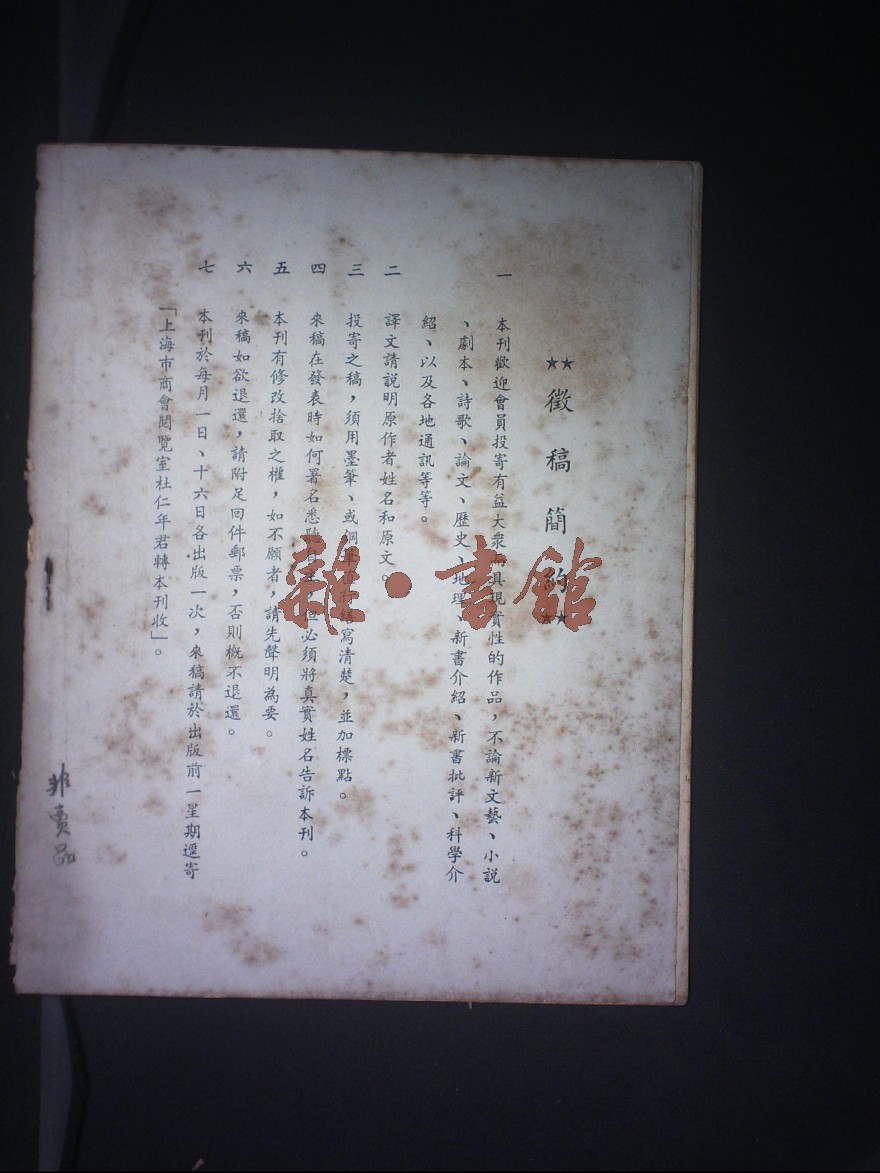 ★★徵稿簡約★★
一 本刊歡迎會員投寄有益大衆而具現實性的作品，不論新文藝、小說
、劇本、詩歌、論文、歷史、地理、新書介紹、新書批評、科學介
紹、以及各地通訊等等。
二 譯文請說明原作者姓名和原文。
三 投寄之稿，須用墨筆、或鋼筆寫清楚，並加標點。
四 來稿在發表時如何署名悉聽自必須將真實姓名告訴本刊。
五 本刊有修改捨取之權，如不願者，請先聲明為要。
六 來稿如欲退還，請附足回件郵票，否則概不退還。
七 本刊於每月一日、十六日各出版一次，來稿請於出版前一星期逕寄
「上海市商會閱覽室杜仁年君轉本刊收」。
非賣品
雜·書館